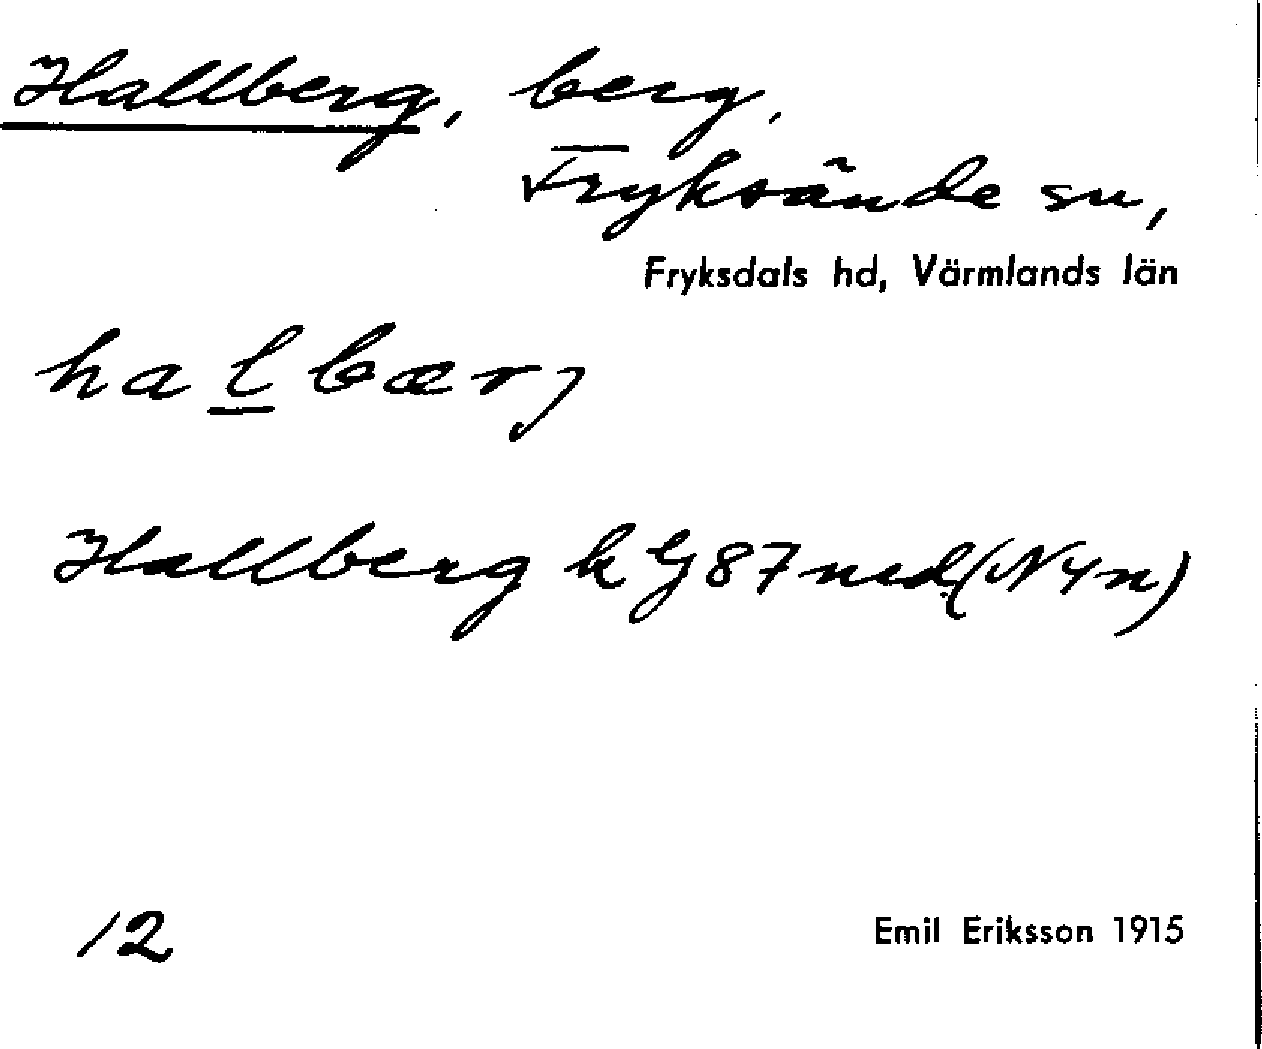 Hallberg, berg,
Fryksände sn,
Fryksdals hd, Värmlands län
halbærj
Hallberg k G 87 ned (N4n)
12
Emil Eriksson 1915